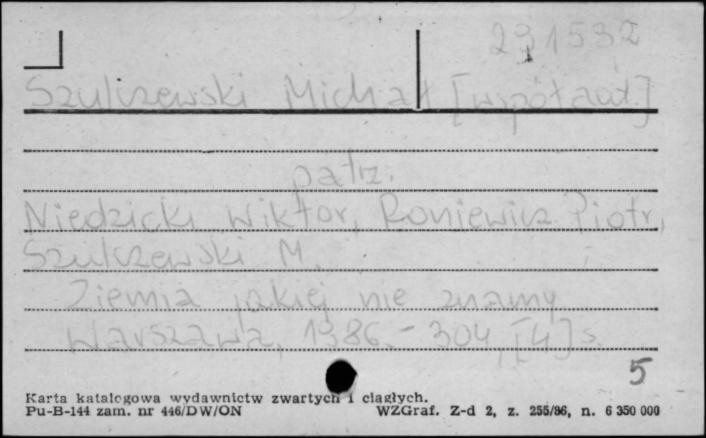 231532
Szulczewski Michał [współaut.]
patrz.
Niedzicki Wiktor, Roniewicz Piotr,
Szulczewski M.
Ziemia jakiej nie znamy
Warszawa, 1986.- 304, [4] s.
5
Karta katalogowa wydawnictw zwartych i ciągłych.
Pu-B-144 zam. nr 446/DW/ON WZGraf. Z-d 2, z. 255/86, n. 6 350 000